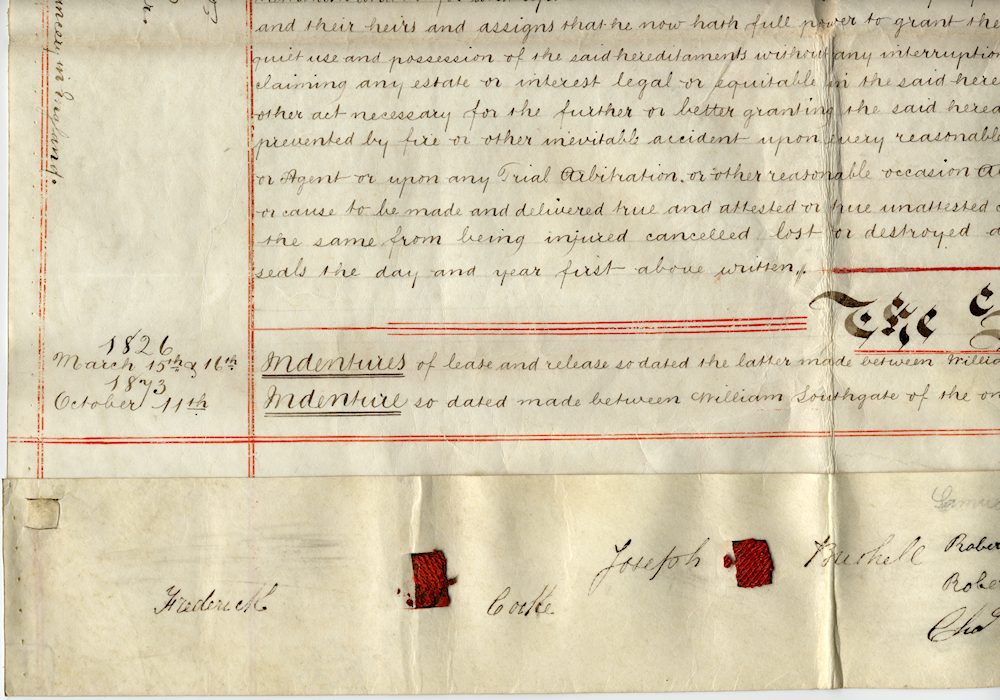 and their heirs and assigns that he now hath full power to grant the
quiet use and possession of the said hereditaments without any interruption
claiming any estate or interest legal or equitable in the said here
other act necessary for the further or better granting the said hered
prevented by fire or other inevitable accident upon every reasonable
or Agent or upon any Trial Arbitration or other reasonable occasion
or cause to be made and delivered true and attested or true unattested
the same from being injured cancelled lost or destroyed
seals the day and year first above written.
The
1826
March 15th & 16th Indentures of lease and release so dated the latter made between Willia
1873
October 11th Indenture so dated made between William Southgate of the on
in England.
Samue
Frederick Cocke
Joseph Bushell
Rober
Robe
Chas